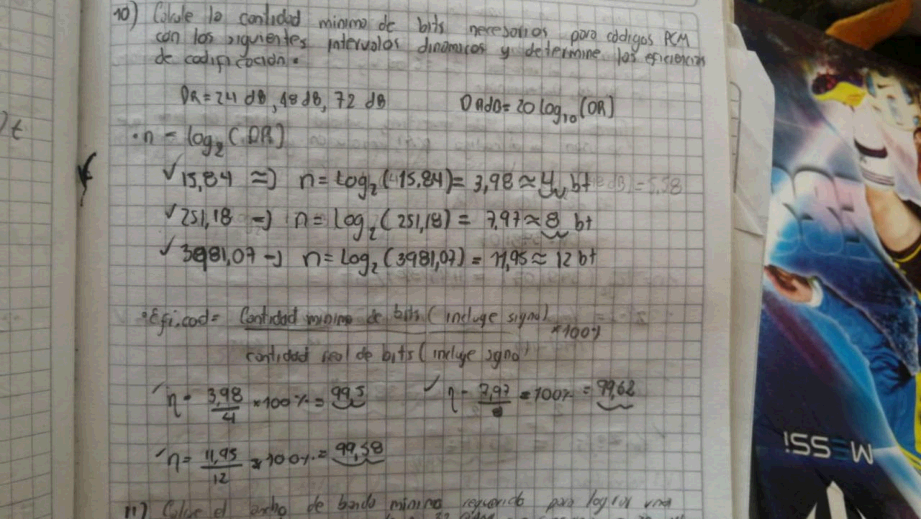 10) Calcule la cantidad minima de bits necesarios para códigos PCM
con los siguientes intervalos dinamicos y determine las eficiencias
de codificación.
DR=24 dB, 48 dB, 72 dB DRdB=20 log10 (DR)
n = log2 (DR)
✓ 15,84 => n = Log2 (15.84) = 3,98 ≈ 4 bt
✓ 251,18 -> n = log2 (251,18) = 7,97 ≈ 8 bt
✓ 3981,07 -> n = Log2 (3981,07) = 11,95 ≈ 12 bt
Efi.cod = Cantidad minima de bits (incluye signo) *100%
cantidad real de bits (incluye sgno)
η = 3,98/4 *100% = 99,5 ✓ η = 7,97/8 *100% = 99,62
η = 11,95/12 *100% = 99,58
11) Calcule el ancho de banda minimo requerido para lograr una
MESSI